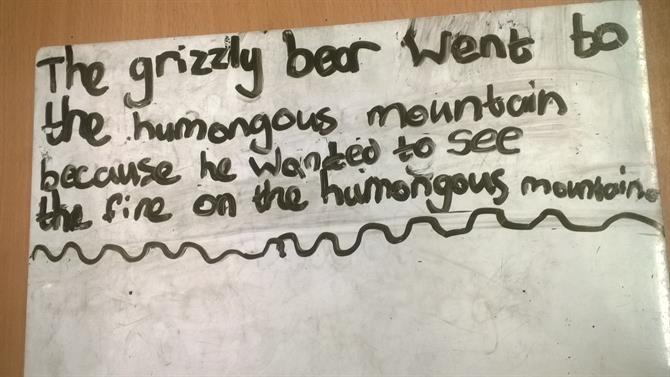 The grizzly bear went to
the humongous mountain
because he wanted to see
the fire on the humongous mountain.